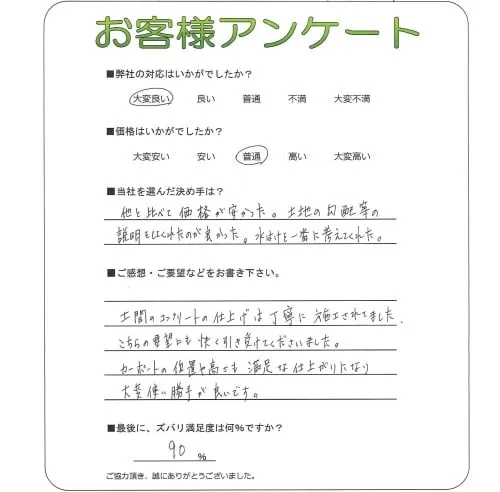 お客様アンケート
■弊社の対応はいかがでしたか？
大変良い 良い 普通 不満 大変不満
■価格はいかがでしたか？
大変安い 安い 普通 高い 大変高い
■当社を選んだ決め手は？
他と比べて価格が安かった。土地の勾配等の
説明をしてくれたのが良かった。水はけを一番に考えてくれた。
■ご感想・ご要望などをお書き下さい。
土間のコンクリートの仕上げは丁寧に施工されてました。
こちらの要望にも快く引き受けてくださいました。
カーポートの位置や高さも満足な仕上がりになり
大変使い勝手が良いです。
■最後に、ズバリ満足度は何％ですか？
90 %
ご協力頂き、誠にありがとうございました。